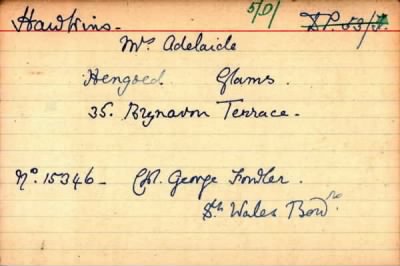 Hawkins - 5/0/ D.P. 53/F.
Mrs Adelaide
Hengoed Glams.
35. Brynavon Terrace.
No. 15346 - Cpl. George Fowler.
Sth Wales Bordrs